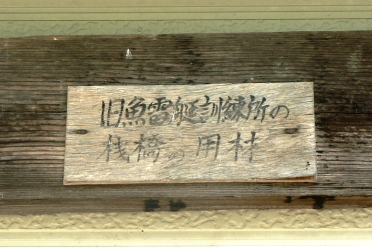 旧魚雷艇訓練所の
桟橋の用材